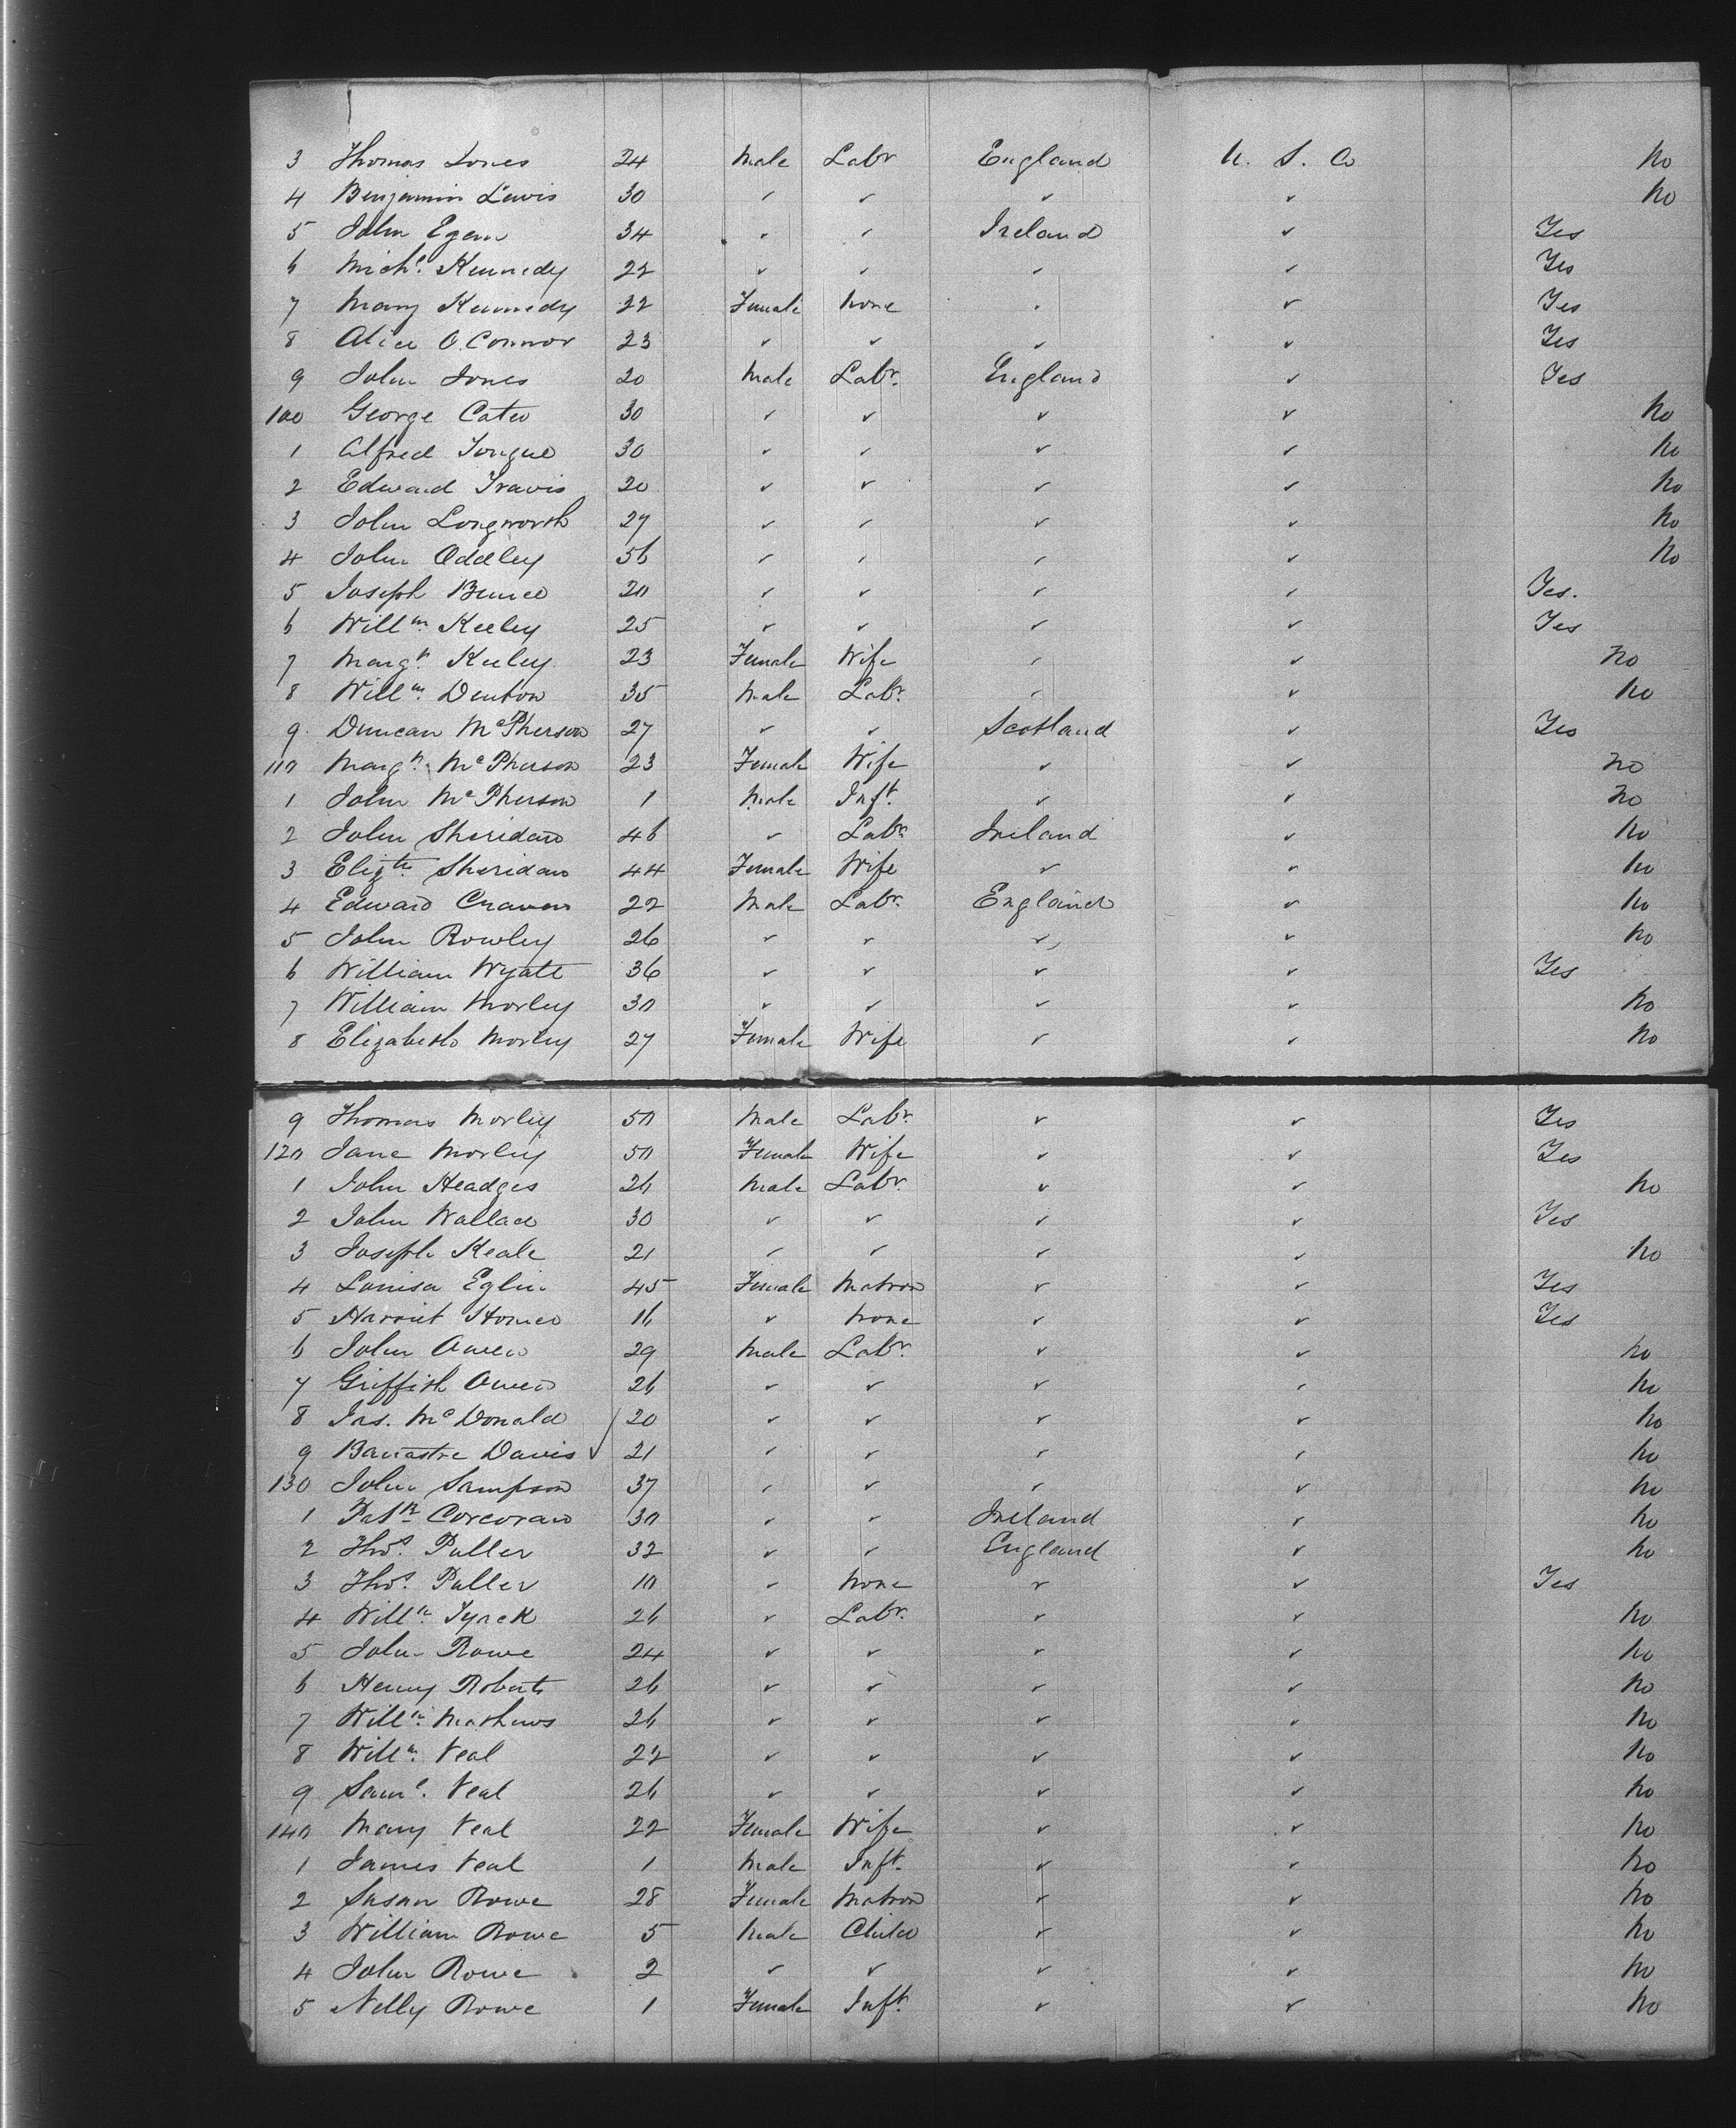 3 Thomas Jones 24 Male Labr England U. S. Co No
4 Benjamin Lewis 30 ✓ ✓ ✓ ✓ No
5 John Egan 34 ✓ ✓ Ireland ✓ Yes
6 Michl. Kennedy 22 ✓ ✓ ✓ ✓ Yes
7 Mary Kennedy 22 Female None ✓ ✓ Yes
8 Alice O.Connor 23 ✓ ✓ ✓ ✓ Yes
9 John Jones 20 Male Labr. England ✓ Yes
100 George Cato 30 ✓ ✓ ✓ ✓ No
1 Alfred Tongue 30 ✓ ✓ ✓ ✓ No
2 Edward Travis 20 ✓ ✓ ✓ ✓ No
3 John Longworth 27 ✓ ✓ ✓ ✓ No
4 John Oddley 56 ✓ ✓ ✓ ✓ No
5 Joseph Bunce 20 ✓ ✓ ✓ ✓ Yes.
6 Willm. Keeley 25 ✓ ✓ ✓ ✓ Yes
7 Margt. Keeley 23 Female Wife ✓ ✓ No
8 Willm. Denton 35 Male Labr. ✓ ✓ No
9 Duncan McPherson 27 ✓ ✓ Scotland ✓ Yes
110 Margt. McPherson 23 Female Wife ✓ ✓ No
1 John McPherson 1 Male Inft. ✓ ✓ No
2 John Sheridan 46 ✓ Labr. Ireland ✓ No
3 Elizth. Sheridan 44 Female Wife ✓ ✓ No
4 Edward Craven 22 Male Labr. England ✓ No
5 John Rowley 26 ✓ ✓ ✓ ✓ No
6 William Wyatt 36 ✓ ✓ ✓ ✓ Yes
7 William Morley 30 ✓ ✓ ✓ ✓ No
8 Elizabeth Morley 27 Female Wife ✓ ✓ No
9 Thomas Morley 50 Male Labr. ✓ ✓ Yes
120 Jane Morley 50 Female Wife ✓ ✓ Yes
1 John Headges 26 Male Labr. ✓ ✓ No
2 John Wallace 30 ✓ ✓ ✓ ✓ Yes
3 Joseph Keale 21 ✓ ✓ ✓ ✓ No
4 Louisa Eglin 45 Female Matron ✓ ✓ Yes
5 Harriet 16 ✓ None ✓ ✓ Yes
6 John Owen 29 Male Labr. ✓ ✓ No
7 Griffith Owen 26 ✓ ✓ ✓ ✓ No
8 Jas. McDonald 20 ✓ ✓ ✓ ✓ No
9 Banastre Davis ✓ 21 ✓ ✓ ✓ ✓ No
130 John Sampson 37 ✓ ✓ ✓ ✓ No
1 Patk. Corcoran 30 ✓ ✓ Ireland ✓ No
2 Thos. Puller 32 ✓ ✓ England ✓ No
3 Thos. Puller 10 ✓ None ✓ ✓ Yes
4 Willm. Tyack 26 ✓ Labr. ✓ ✓ No
5 John Rowe 24 ✓ ✓ ✓ ✓ No
6 Henry Roberts 26 ✓ ✓ ✓ ✓ No
7 Willm. Mathews 26 ✓ ✓ ✓ ✓ No
8 Willm. Veal 22 ✓ ✓ ✓ ✓ No
9 Saml. Veal 26 ✓ ✓ ✓ ✓ No
140 Mary Veal 22 Female Wife ✓ ✓ No
1 James Veal 1 Male Inft. ✓ ✓ No
2 Susan Rowe 28 Female Matron ✓ ✓ No
3 William Rowe 5 Male Child ✓ ✓ No
4 John Rowe 2 ✓ ✓ ✓ ✓ No
5 Nelly Rowe 1 Female Inft. ✓ ✓ No